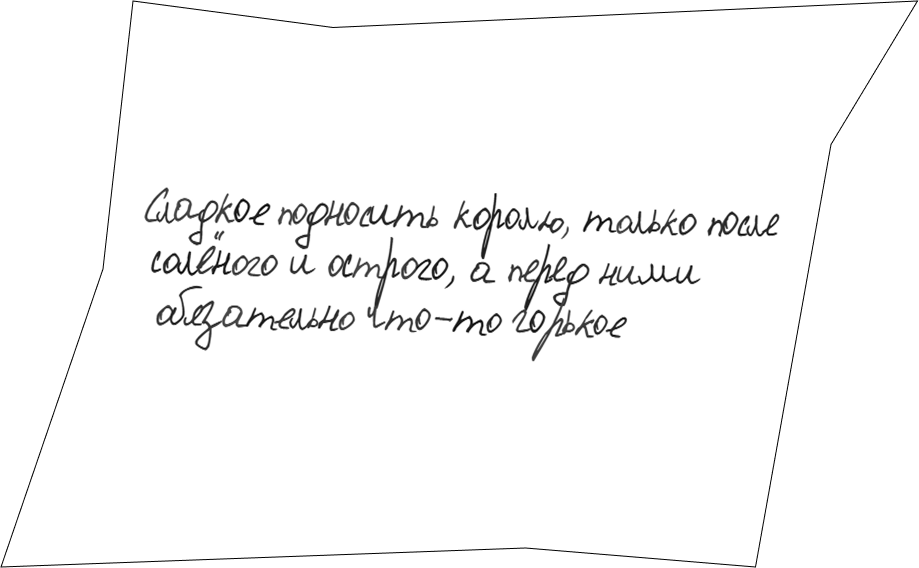 Сладкое подносить королю, только после
солёного и острого, а перед ними
обязательно что-то горькое